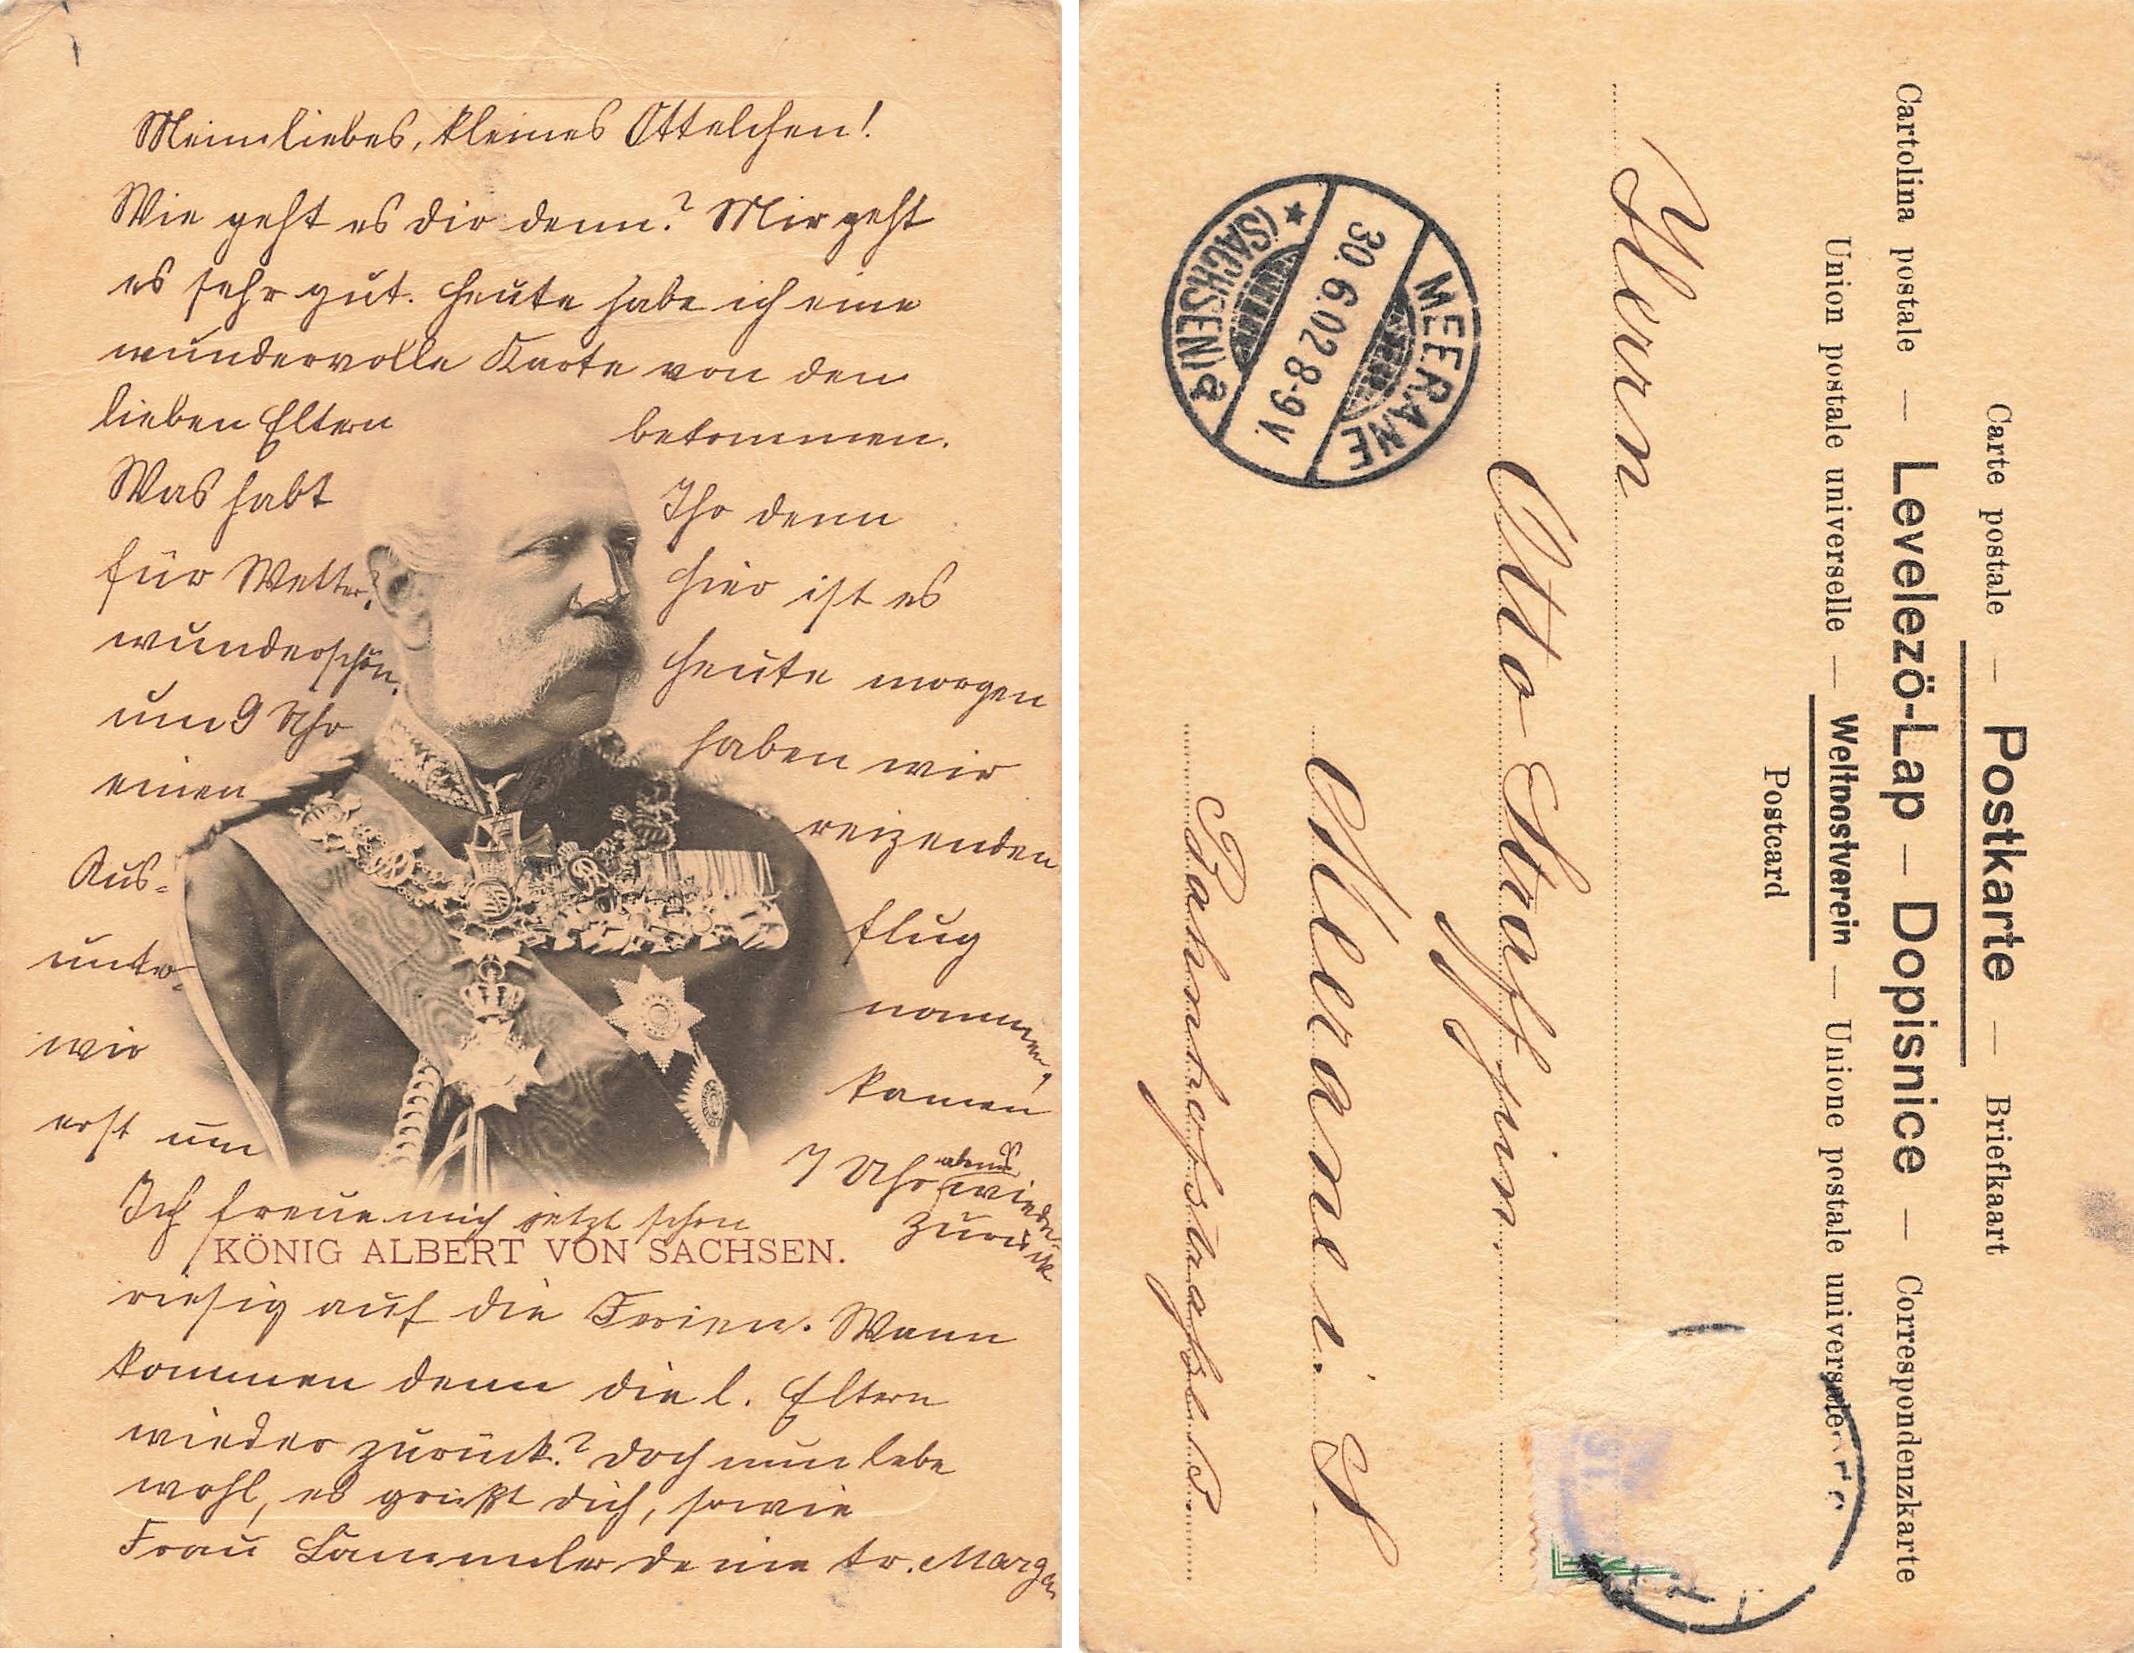 Mein liebes, kleines Ottelchen!
Wie geht es dir denn? Mir geht
es sehr gut. Heute habe ich eine
wundervolle Karte von den
lieben Eltern bekommen.
Was habt Ihr denn
für Wetter? Hier ist es
wunderschön. Heute morgen
um 9 Uhr haben wir
einen reizenden
Aus= flug
unter= nommen,
wir kamen
erst um 7 Uhr abends wieder
zurück
Ich freue mich jetzt schon
KÖNIG ALBERT VON SACHSEN.
riesig auf die Ferien. Wann
kommen denn die l. Eltern
wieder zurück? Doch nun lebe
wohl, es grüßt dich, sowie
Frau deine tr.
Carte postale — Postkarte — Briefkaart
Cartolina postale — Levelezö-Lap — Dopisnice — Correspondenzkarte
Union postale universelle — Weltpostverein — Unione postale universale
Postcard
Herrn
Otto jun.
Meerane i. S.
Bahnhofstraße
MEERANE
30.6.02 8-9V.
* (SACHSEN) a